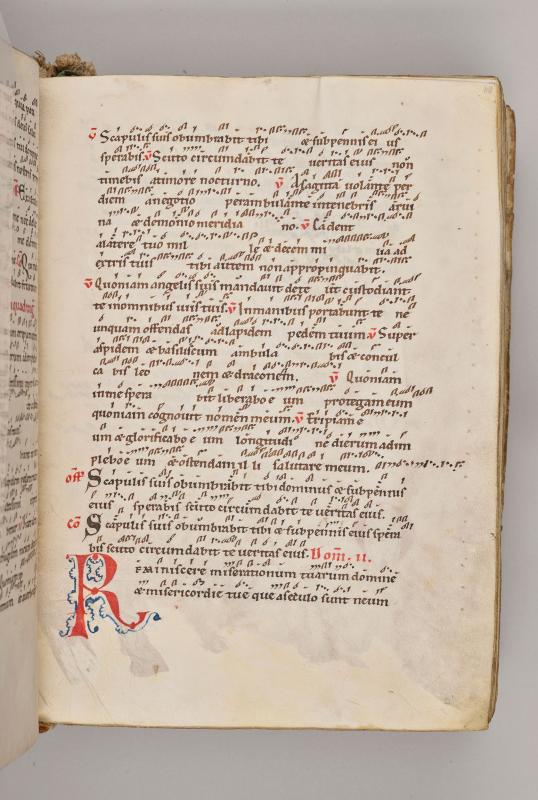 v̄ Scapulis suis obumbrabit tibi & subpennis ei us
sperabis. v̄ Scuto circumdabit te veritas eius non
timebis atimore nocturno. v̄ Asagitta volante per
diem anegotio perambulante intenebris a rui
na & demonio meridia no. v̄ Cadent
alatere tuo mil le & decem mi lia ad
extris tuis tibi autem non appropinquabit.
v̄ Quoniam angelis suis mandavit dete ut custodiant
te inomnibus viis tuis. v̄ Inmanibus portabunt te ne
unquam offendas adlapidem pedem tuum. v̄ Super
aspidem & basiliscum ambula bis & concul
ca bis leo nem & draconem. v̄ Quoniam
inme spera vit liberabo e um protegam eum
quoniam cognovit nomen meum. v̄ Eripiam e
um & glorificabo e um longitudi ne dierum adim
plebo e um & ostendam il li salutare meum.
off Scapulis suis obumbrabit tibi dominus & subpennis
eius sperabis scuto circumdabit te veritas eius.
cō Scapulis suis obumbrabit tibi & subpennis eius spera
bis scuto circumdabit te veritas eius. Dom̄. II.
REMINISCERE miserationum tuarum domine
& misericordie tue que aseculo sunt neum